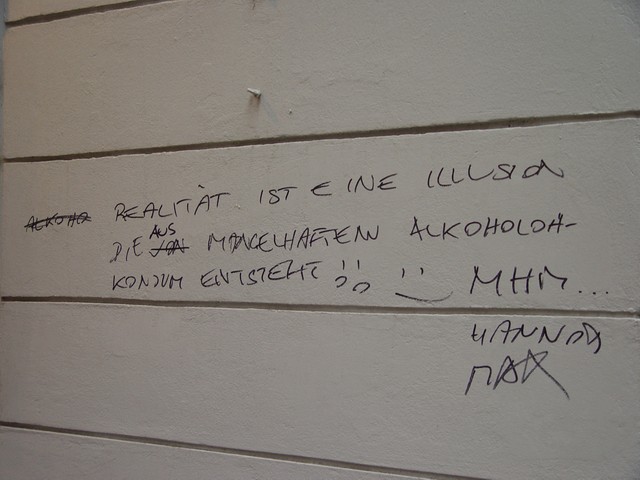 ALKOHO REALITÄT IST EINE ILLUSION
DIE AUS MANGELHAFTEM
KONSUM ENTSTEHT !! :) MHM...
HANNAH
MAX